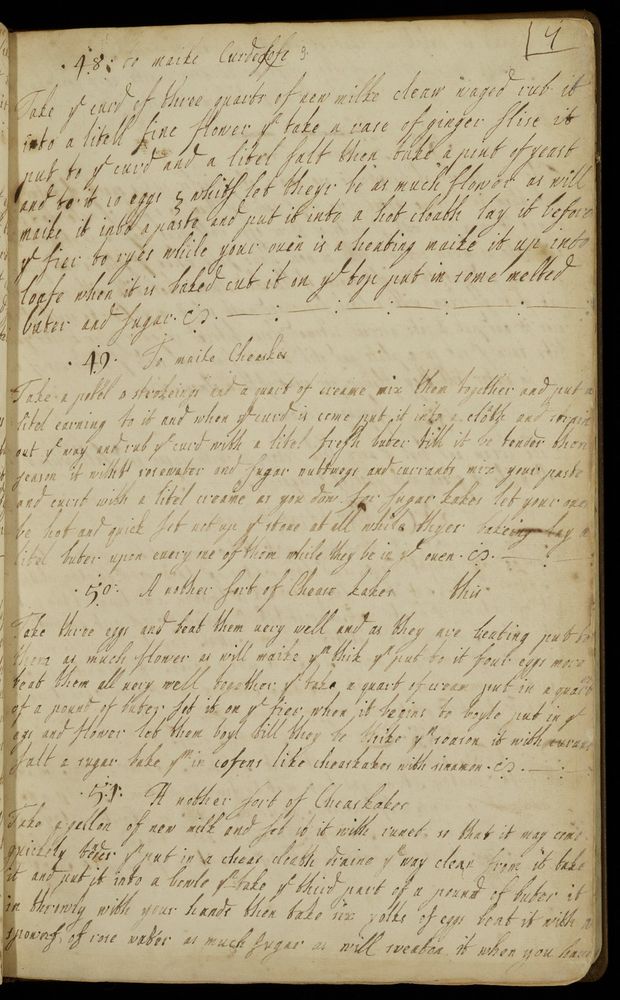 4
· 48 : To maike Curdloffe
Take ye curd of three quarts of new milke cleanw waged rub it
into a litell fine flower yn take a rase of ginger slise it
put to ye curd and a litel salt then take a pint of yeast
and to it 10 eggs 5 whits let theyr be as much flower as will
maike it into a paste and put it into a hot cloath lay it before
ye fier to ryes while your ouen is a heating maike it up into
loafe when it is baked cut it on ye tope put in some melted
buter and sugar
· 49 · To maike Cheaskes
Take a pottel o strokeings and a quart of creame mix them together and put a
litel earning to it and when ye curd is come put it into a cloth and
out ye way and rub ye curd with a litel fresh buter till it be tender then
season it witht rosewater and sugar nuttmegs and currants mix your paste
and curst with a litel creame as you dow for sugar kakes let your ouen
be hot and quick set not up ye stone at all while theyer bakeing lay a
litel buter upon euery one of them while they be in ye ouen
· 50 · A nother sort of Chease kakes this
Take three eggs and beat them uery well and as they are beating put to
them as much flower as will maike ym thik yn put to it four eggs more
beat them all uery well together yn take a quart of cream put in a quart
of a pound of buter set it on ye fier when it begins to boyle put in ye
egs and flower let them boyl till they be thike yn season it with
salt a sugar bake ym in cofens like cheaskakes with sinamon
· 51 · A nother sort of Cheaskakes
Take a gallon of new milk and set to it with runet so that it may come
quickly yn put in a cheas cloath draine ye way clean from it take
it and put it into a bowle yn take ye third part of a pound of buter it
in throwly with your hands then take six yolks of eggs beat it with a
of rose water as much sugar as will sweaten it when you haue